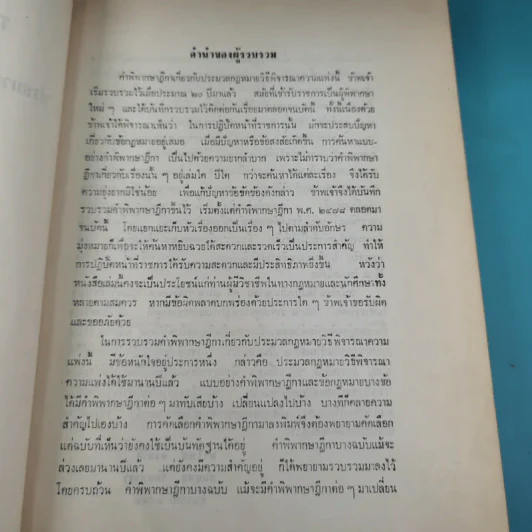 คำนำของผู้รวบรวม
คำพิพากษาฎีกาเกี่ยวกับประมวลกฎหมายวิธีพิจารณาความแพ่งนี้ ข้าพเจ้า
เริ่มรวบรวมไว้เมื่อประมาณ ๒๐ ปีมาแล้ว สมัยที่เข้ารับราชการเป็นผู้พิพากษา
ใหม่ ๆ และได้บันทึกรวบรวมไว้ติดต่อกันเรื่อยมาตลอดจนบัดนี้ ทั้งนี้เนื่องด้วย
ข้าพเจ้าได้พิจารณาเห็นว่า ในการปฏิบัติหน้าที่ราชการนั้น มักจะประสบปัญหา
เกี่ยวกับข้อกฎหมายอยู่เสมอ เมื่อมีปัญหาหรือข้อสงสัยเกิดขึ้น การค้นหาแบบ-
อย่างคำพิพากษาฎีกา เป็นไปด้วยความยากลำบาก เพราะไม่ทราบว่าคำพิพากษา
ฎีกาเกี่ยวกับเรื่องนั้น ๆ อยู่เล่มใด ปีใด กว่าจะค้นหาได้แต่ละเรื่อง จึงได้รับ
ความยุ่งยากมิใช่น้อย เพื่อแก้ปัญหาข้อขัดข้องดังกล่าว ข้าพเจ้าจึงได้บันทึก
รวบรวมคำพิพากษาฎีกาขึ้นไว้ เริ่มตั้งแต่คำพิพากษาฎีกา พ.ศ. ๒๔๗๘ ตลอดมา
จนบัดนี้ โดยแยกแยะเก็บหัวเรื่องออกเป็นเรื่อง ๆ ไปตามลำดับอักษร ความ
มุ่งหมายก็เพื่อจะให้ค้นหาหยิบฉวยได้สะดวกและรวดเร็วเป็นประการสำคัญ ทำให้
การปฏิบัติหน้าที่ราชการได้รับความสะดวกและมีประสิทธิภาพยิ่งขึ้น หวังว่า
หนังสือเล่มนี้คงจะเป็นประโยชน์แก่ท่านผู้มีวิชาชีพในทางกฎหมายและนักศึกษาทั้ง
หลายตามสมควร หากมีข้อผิดพลาดบกพร่องด้วยประการใด ๆ ข้าพเจ้าขอรับผิด
และขออภัยด้วย
ในการรวบรวมคำพิพากษาฎีกาเกี่ยวกับประมวลกฎหมายวิธีพิจารณาความ
แพ่งนี้ มีข้อหนักใจอยู่ประการหนึ่ง กล่าวคือ ประมวลกฎหมายวิธีพิจารณา
ความแพ่งได้ใช้มานานปีแล้ว แบบอย่างคำพิพากษาฎีกาและข้อกฎหมายบางข้อ
ได้มีคำพิพากษาฎีกาต่อ ๆ มาทับเสียบ้าง เปลี่ยนแปลงไปบ้าง บางทีก็คลายความ
สำคัญไปเองบ้าง การคัดเลือกคำพิพากษาฎีกามาลงพิมพ์จึงต้องพยายามคัดเลือก
แต่ฉบับที่เห็นว่ายังคงใช้เป็นบันทัดฐานได้อยู่ คำพิพากษาฎีกาบางฉบับแม้จะ
ล่วงเลยมานานปีแล้ว แต่ยังคงมีความสำคัญอยู่ ก็ได้พยายามรวบรวมมาลงไว้
โดยครบถ้วน คำพิพากษาฎีกาบางฉบับ แม้จะมีคำพิพากษาฎีกาต่อ ๆ มาเปลี่ยน